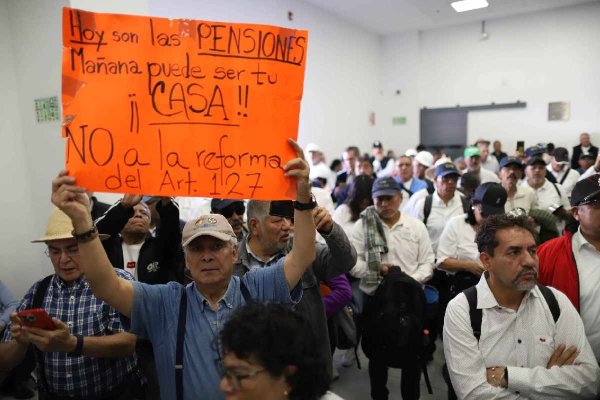 Hoy son las PENSIONES
Mañana puede ser tu
¡¡ CASA !!
NO a la reforma
del Art. 127